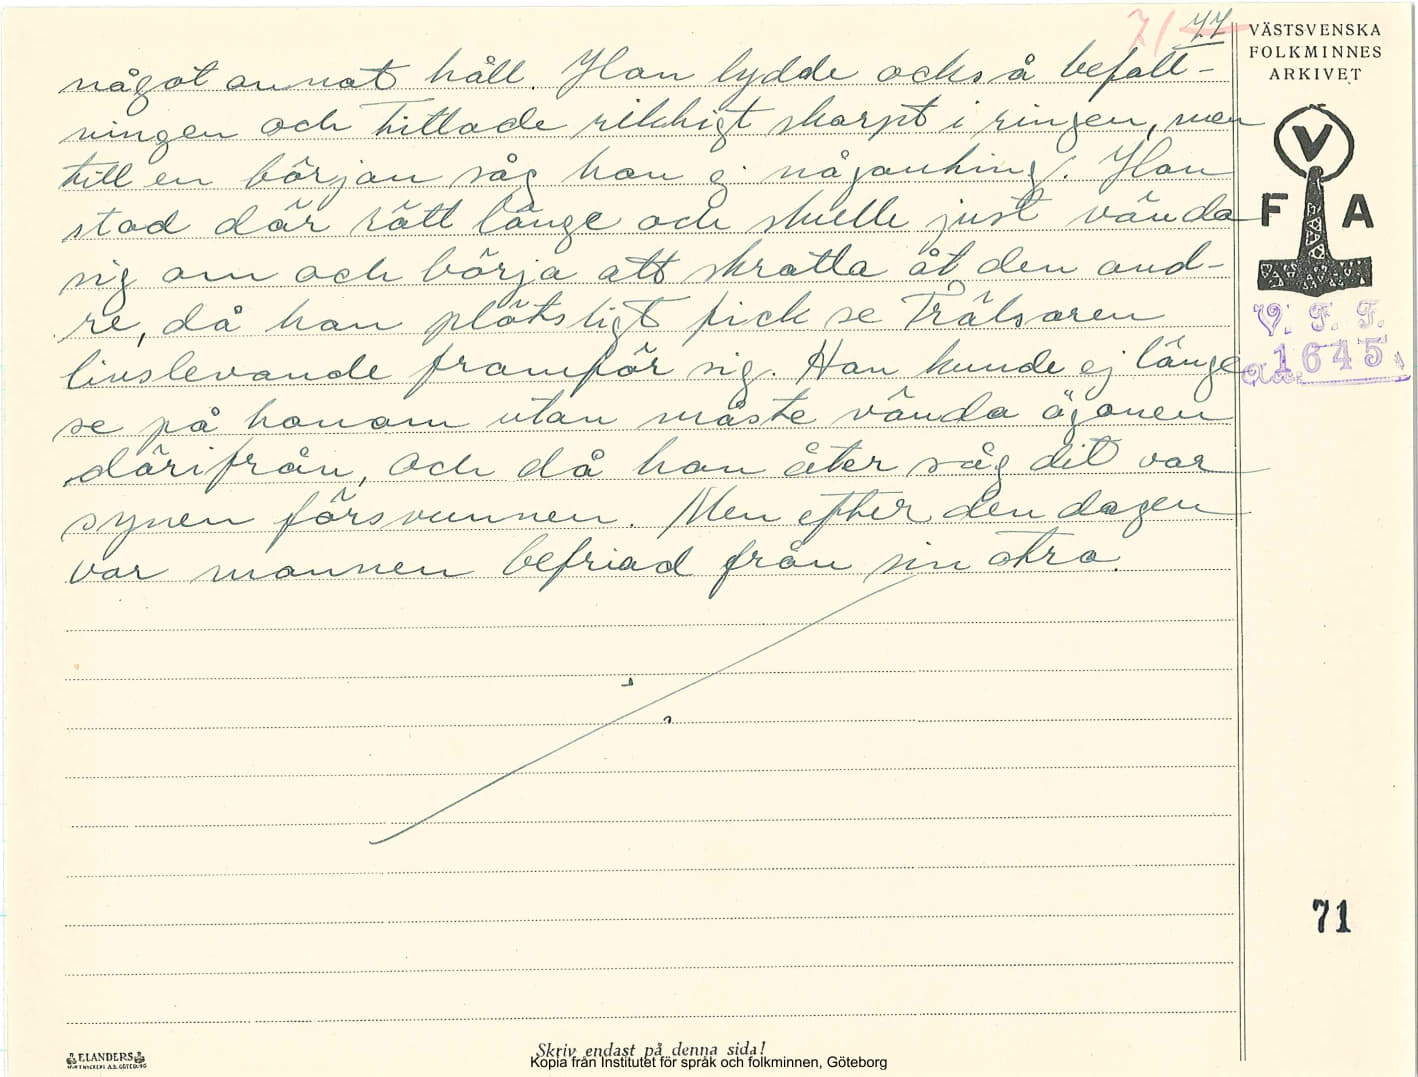 71 77
något annat håll. Han lydde också befall-
ningen och tittade riktigt skarpt i ringen, men
till en början såg han ej någonting. Han
stod där rätt länge och skulle just vända
sig om och börja att skratta åt den and-
re, då han plötsligt fick se Frälsaren
livslevande framför sig. Han kunde ej länge
se på honom utan måste vända ögonen
därifrån, och då han åter såg dit var
synen försvunnen. Men efter den dagen
var mannen befriad från sin otro.
VÄSTSVENSKA
FOLKMINNES
ARKIVET
V
F A
V. F. F.
1645
71
Skriv endast på denna sida!
Kopia från Institutet för språk och folkminnen, Göteborg
ELANDERS